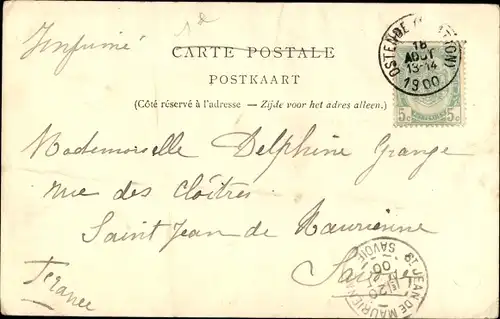 Imprimé
CARTE POSTALE
POSTKAART
(Côté réservé à l'adresse — Zijde voor het adres alleen.)
OSTENDE (STATION)
18
AOUT
13-14
1900
5c 5c
Mademoiselle Delphine Grange
rue des Cloîtres
Saint Jean de Maurienne
Savoie
France
ST JEAN DE MAURIENNE
SAVOIE
20
00